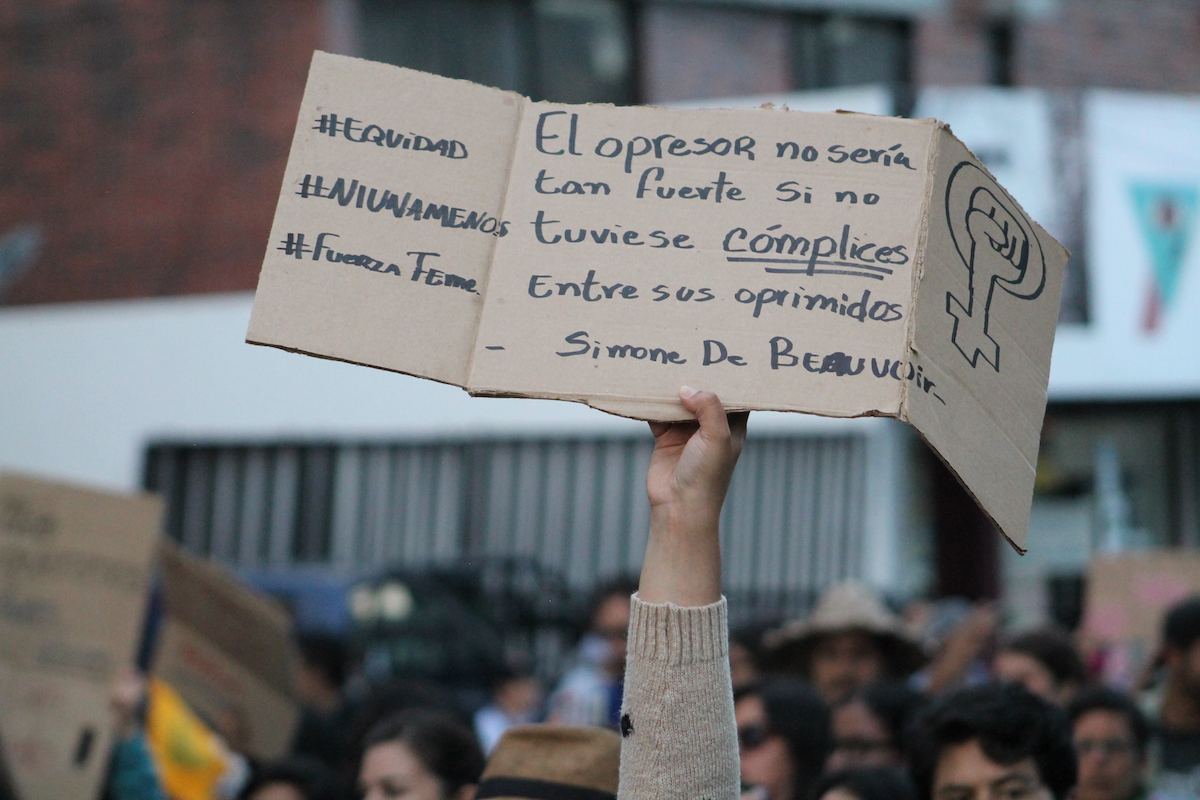 #EQUIDAD
#NIUNAMENOS
#Fuerza Feme
El opresor no sería
tan fuerte si no
tuviese cómplices
Entre sus oprimidos
- Simone De Beauvoir-